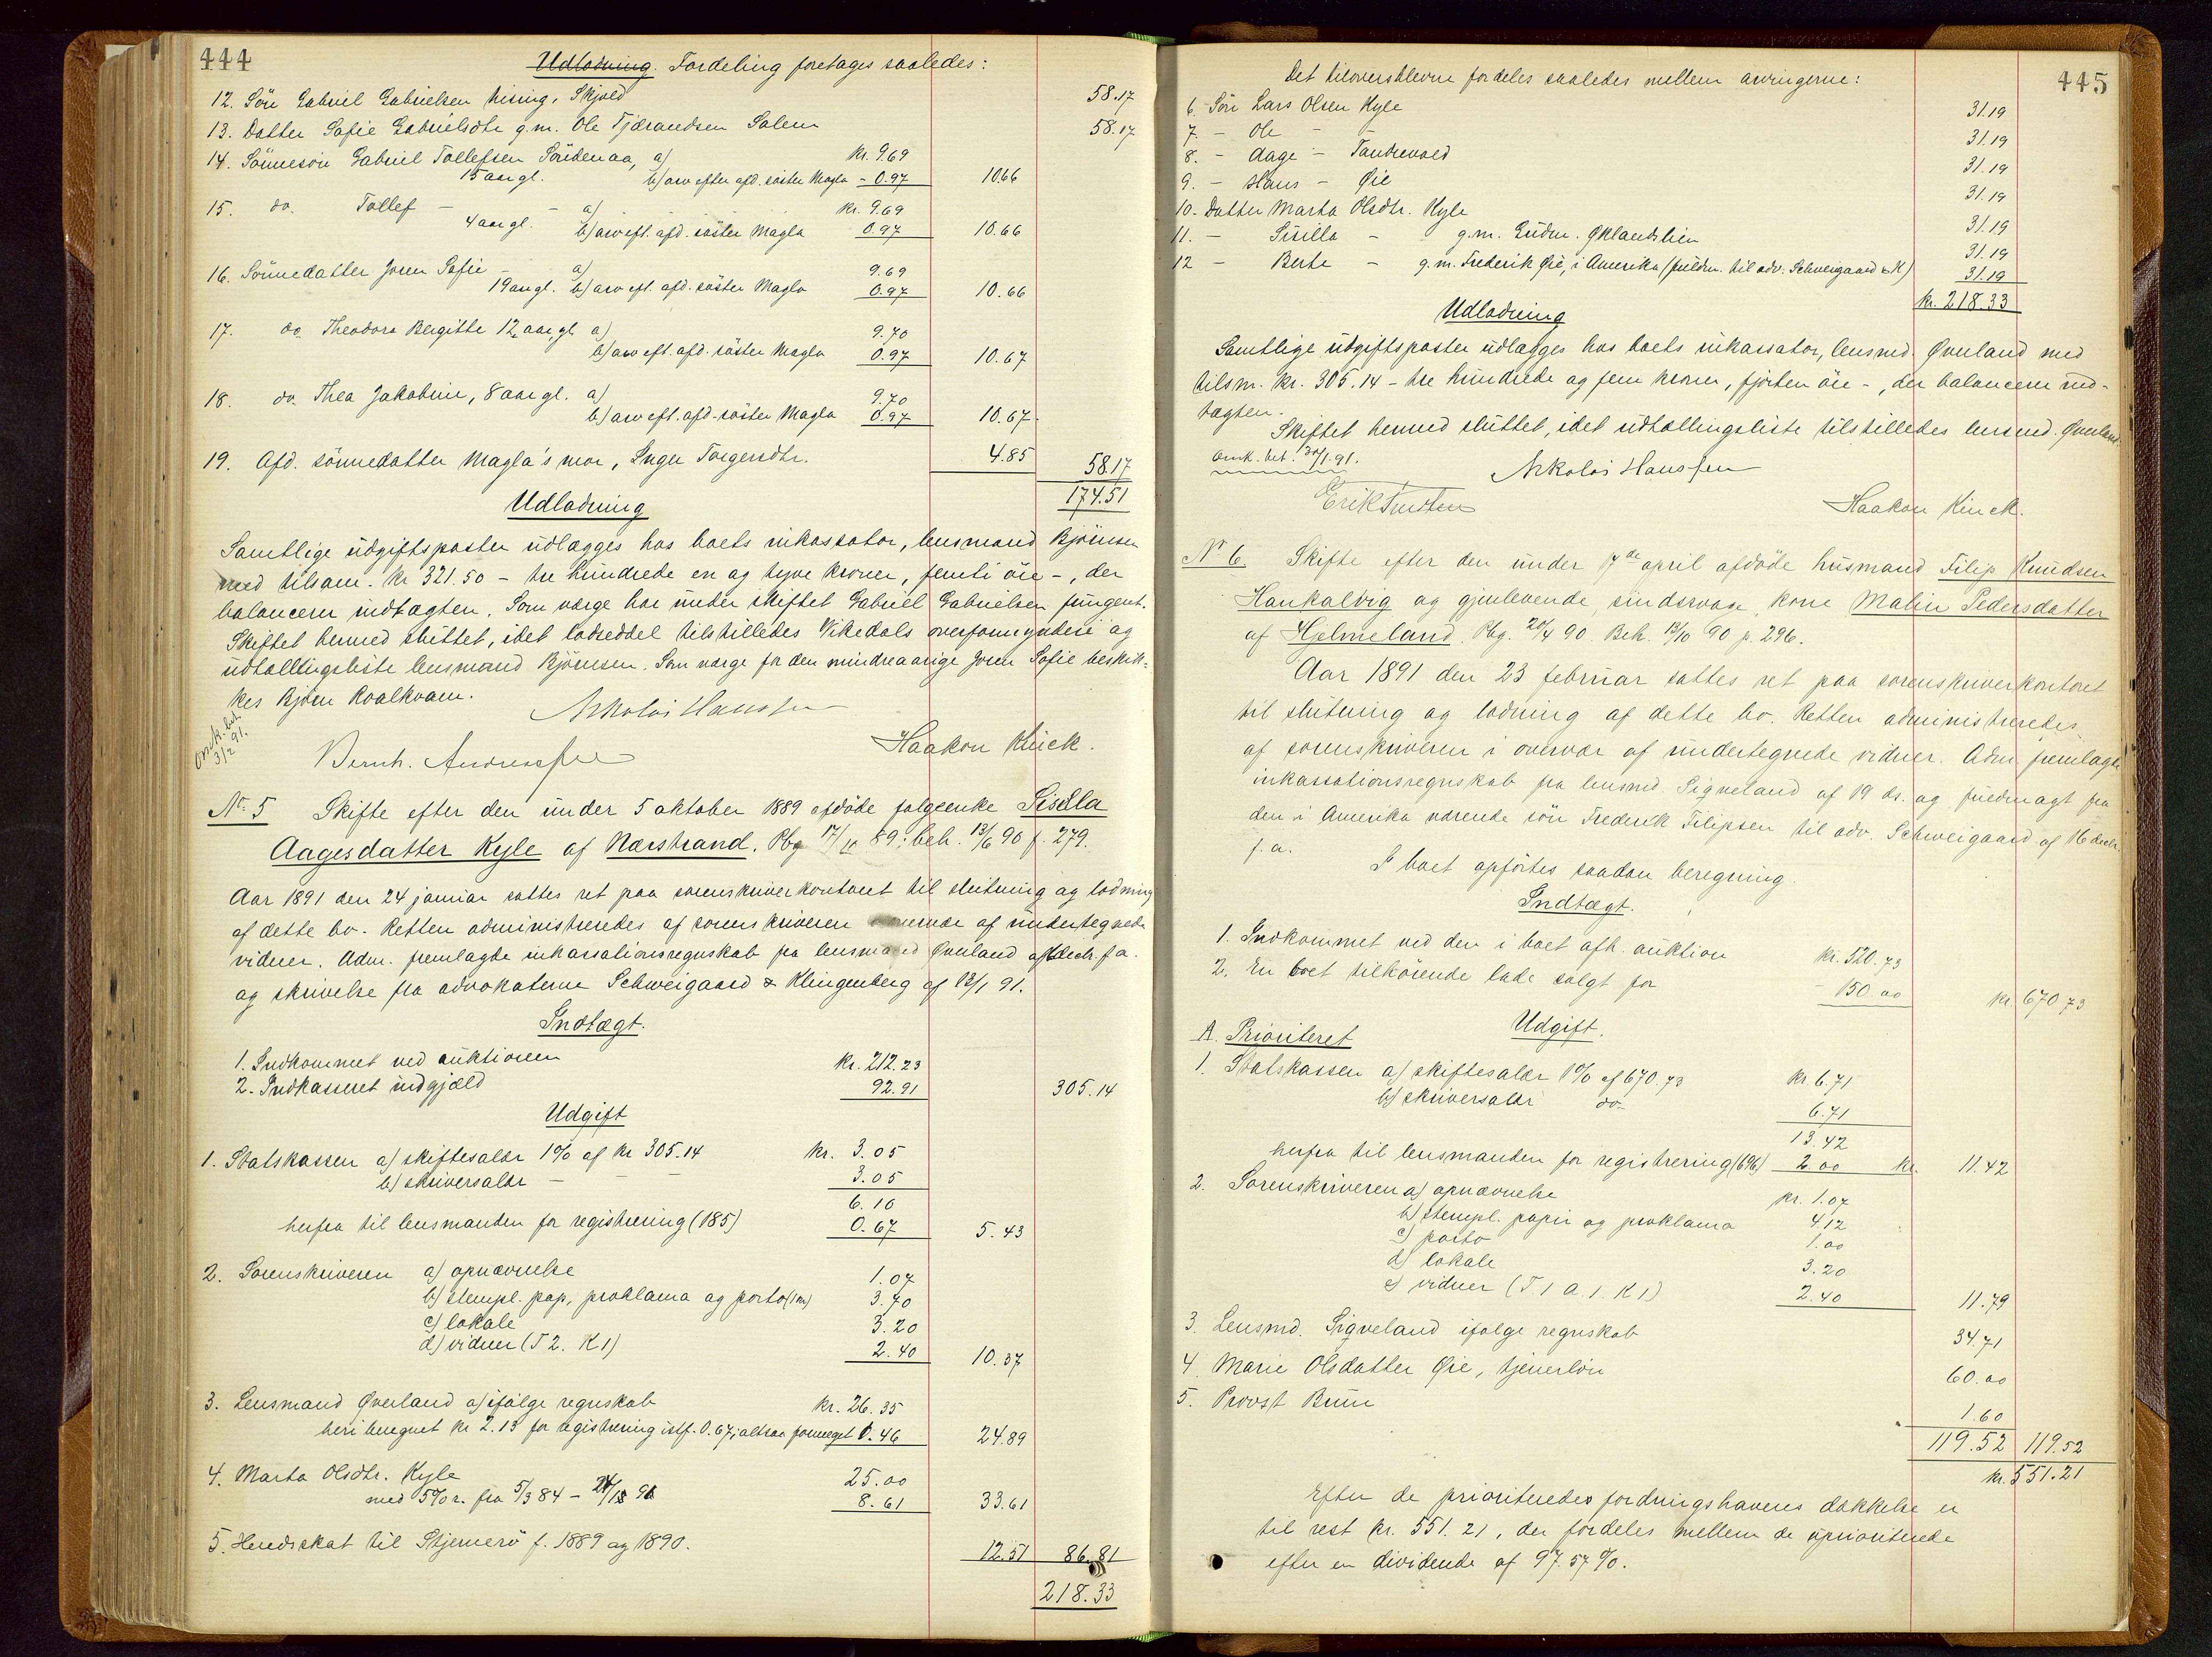 444
Udlodning. Fordeling foretages saaledes:
12. Søn Gabriel Gabrielsen Krising, Skjold 58.17
13. Datter Sofie Gabrielsdtr g.m. Ole Tjærandsen Salem 58.17
14. Sønnesøn Gabriel Tollefsen Søndenaa, a) Kr. 9.69
15 aar gl. b) arv efter afd. søster Magla - 0.97 10.66
15. do. Tollef - - a) Kr. 9.69
4 aar gl. b) arv eft. afd. søster Magla 0.97 10.66
16. Sønnedatter Joren Sofie - a) 9.69
19 aar gl. b) arv eft. afd. søster Magla 0.97 10.66
17. do. Theodora Bergitte 12 aar gl. a) 9.70
b) arv eft. afd. søster Magla 0.97 10.67
18. do. Thea Jakobine, 8 aar gl. a) 9.70
b) arv eft. afd. søster Magla 0.97 10.67
19. Afd. sønnedatter Magla's mor, Inger Torgersdtr. 4.85 58.17
174.51
Udlodning
Samtlige udgiftsposter udlægges hos boets inkassator, lensmand Bjørnsen
med tilsam. Kr 321.50 - tre hundrede en og tyve kroner, femti øre -, der
balancerer indtægten. Som værge har under skiftet Gabriel Gabrielsen fungert.
Skiftet hermed sluttet, idet lodseddel tilstilledes Vikedals overformynderi og
udtællingsliste lensmand Bjørnsen. Som værge for den mindreaarige Joren Sofie beskik-
kes Bjørn Roalkvam.
Nikolai Hanssen
Omk. bet. 3/2 91.
Bernh. Andreassen Haakon Kinck.
No 5 Skifte efter den under 5 oktober 1889 afdøde folgeenke Sisilla
Aagesdatter Kyle af Nærstrand. Pbg 17/10 89; beh. 13/6 90 p. 279.
Aar 1891 den 24 januar sattes ret paa sorenskriverkontoret til slutning og lodning
af dette bo. Retten administreredes af sorenskriveren i overvær af undertegnede
vidner. Adm. fremlagde inkassationsregnskab fra lensmand Øverland af decbr. f.a.
og skrivelse fra advokaterne Schweigaard & Klingenberg af 13/1 91.
Indtægt.
1. Indkommet ved auktionen Kr. 212.23
2. Indkasseret indgjæld 92.91 305.14
Udgift
1. Statskassen a) skiftesalær 1% af kr 305.14 Kr. 3.05
b) skriversalær - - - 3.05
6.10
herfra til lensmanden for registrering (185) 0.67 5.43
2. Sorenskriveren a) opnævnelse 1.07
b) stempl. pap., proklama og porto (1 m) 3.70
c) lokale 3.20
d) vidner (T 2. K 1) 2.40 10.37
3. Lensmand Øverland a) ifølge regnskab Kr. 26.35
heri beregnet kr 2.13 for registrering istf. 0.67, altsaa formeget 1.46 24.89
4. Marta Olsdtr. Kyle 25.00
med 5% r. fra 5/3 84 - 24/1 91 8.61 33.61
5. Herredskat til Stjernerø f. 1889 og 1890. 12.51 86.81
218.33
445
Det tiloversblevne fordeles saaledes mellem arvingerne:
6. Søn Lars Olsen Kyle 31.19
7. - Ole - - 31.19
8. - Aage - Tandrevold 31.19
9. - Hans - Øie 31.19
10. Datter Marta Olsdtr. Kyle 31.19
11. - Sisilla - g.m. Gudm. Øklandslien 31.19
12 - Berte - g.m. Frederik Øie, i Amerika (fuldm. til adv. Schweigaard & K) 31.19
Kr. 218.33
Udlodning
Samtlige udgiftsposter udlægges hos boets inkassator, lensmd. Øverland med
tilsm. kr. 305.14 - tre hundrede og fem kroner, fjorten øre -, der balancerer ind-
tægten.
Skiftet hermed sluttet, idet udtællingsliste tilstilledes lensmd. Øverland.
Omk. bet. 30/1 91.
Nikolai Hanssen
Erik Knutsen Haakon Kinck.
No 6. Skifte efter den under 7de april afdøde husmand Filip Knudsen
Haukalvig og gjenlevende, sindssvage kone Malin Pedersdatter
af Hjelmeland. Pbg. 20/4 90. Beh. 13/10 90 p. 296.
Aar 1891 den 23 februar sattes ret paa sorenskriverkontoret
til slutning og lodning af dette bo. Retten administreredes
af sorenskriveren i overvær af undertegnede vidner. Adm. fremlagde
inkassationsregnskab fra lensmd. Sigveland af 19 ds. og fuldmagt fra
den i Amerika værende søn Frederik Filipsen til adv. Schweigaard af 16 decbr.
f.a.
I boet opførtes saadan beregning.
Indtægt.
1. Indkommet ved den i boet afh. auktion Kr. 520.73
2. En boet tilhørende lade solgt for - 150.00 Kr. 670.73
Udgift.
A. Prioriteret
1. Statskassen a) skiftesalær 1% af 670.73 Kr. 6.71
b) skriversalær do. 6.71
13.42
herfra til lensmanden for registrering (696) 2.00 Kr. 11.42
2. Sorenskriveren a) opnævnelse Kr. 1.07
b) stempl. papir og proklama 4.12
c) porto 1.00
d) lokale 3.20
e) vidner (T 1 A. 1. K 1) 2.40 11.79
3. Lensmd. Sigveland ifølge regnskab 34.71
4. Marie Olsdatter Øie, tjenerløn 60.00
5. Provst Bruun 1.60
119.52 119.52
Kr. 551.21
Efter de prioriteredes fordringshaveres dækkelse er
til rest kr. 551.21, der fordeles mellem de uprioriterede
efter en dividende af 97.57%.